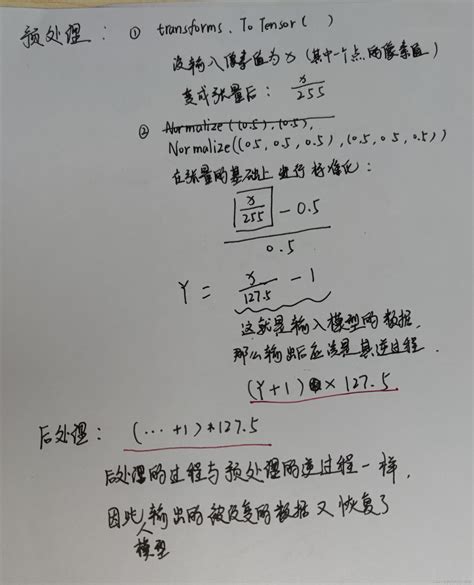 预处理： ① transforms. ToTensor( )
设输入像素值为x (其中一个点的像素值)
变成张量后： x/255
② Normalize((0.5),(0.5),
Normalize((0.5, 0.5, 0.5), (0.5, 0.5, 0.5))
在张量的基础上进行标准化：
x/255 - 0.5
0.5
Y = x/127.5 - 1
这就是输入模型的数据,
那么输出后应该是其逆过程.
(Y+1) × 127.5
后处理： (··· +1) * 127.5
后处理的过程与预处理的逆过程一样,
因此输出的被改变的数据又恢复了
模型